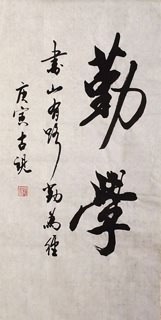 勤學
書山有路勤為徑
庚寅古